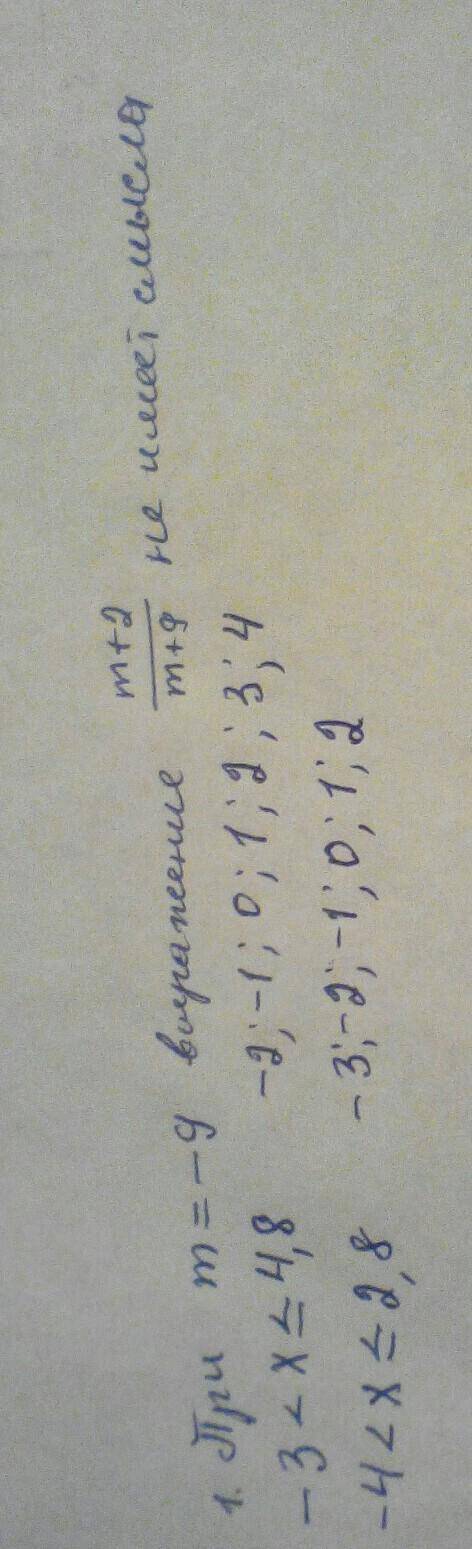 1. При m = -9 выражение m+2/m+9 не имеет смысла
-3 < x ≤ 4,8 -2; -1; 0; 1; 2; 3; 4
-4 < x ≤ 2,8 -3; -2; -1; 0; 1; 2